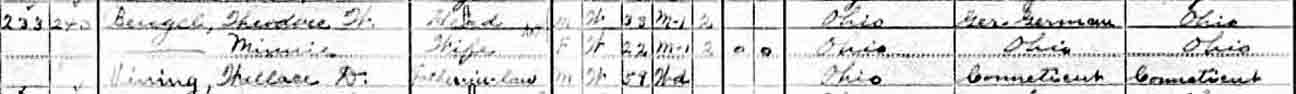 233 243 Bengel, Theodore W. Head M W 33 M-1 2 Ohio Ger. German Ohio
— Minnie Wife F W 22 M-1 2 0 0 Ohio Ohio Ohio
Vining, Wallace D. Father-in-law M W 59 Wd Ohio Conneticut Conneticut